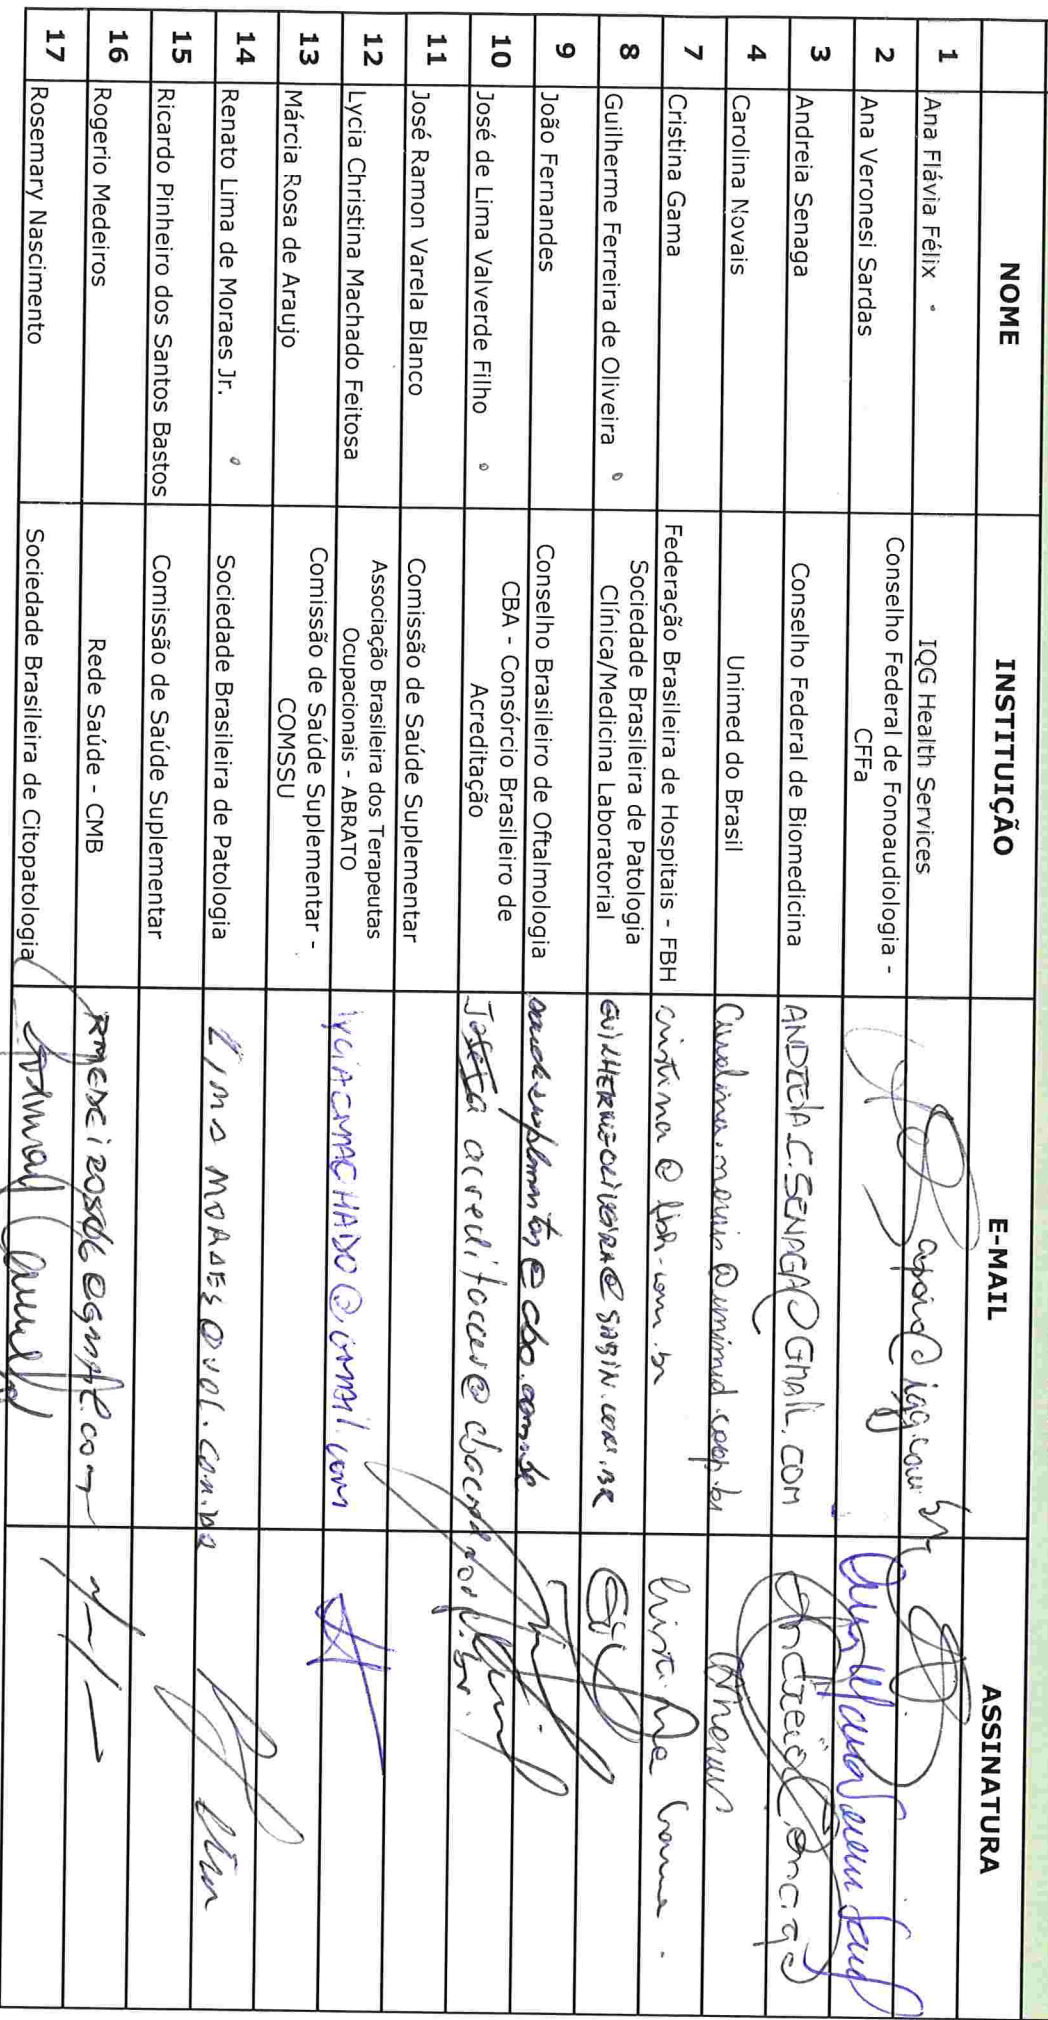 NOME INSTITUIÇÃO E-MAIL ASSINATURA
1 Ana Flávia Félix IQG Health Services
2 Ana Veronesi Sardas Conselho Federal de Fonoaudiologia -
CFFa
3 Andreia Senaga Conselho Federal de Biomedicina ANDREIA.C.SENAGA@GMAIL.COM
4 Carolina Novais Unimed do Brasil Carolina.novais@unimed.coop.br
7 Cristina Gama Federação Brasileira de Hospitais - FBH cristina@fbh.com.br Cristina Gama
8 Guilherme Ferreira de Oliveira Sociedade Brasileira de Patologia
Clínica/Medicina Laboratorial GUILHERME.OLIVEIRA@SABIN.COM.BR
9 João Fernandes Conselho Brasileiro de Oftalmologia
10 José de Lima Valverde Filho CBA - Consórcio Brasileiro de
Acreditação
11 José Ramon Varela Blanco Comissão de Saúde Suplementar
12 Lycia Christina Machado Feitosa Associação Brasileira dos Terapeutas
Ocupacionais - ABRATO lyciACMACHADO@GMAIL.com
13 Márcia Rosa de Araujo Comissão de Saúde Suplementar -
COMSSU
14 Renato Lima de Moraes Jr. Sociedade Brasileira de Patologia LIMA MORAES@UOL.COM.BR
15 Ricardo Pinheiro dos Santos Bastos Comissão de Saúde Suplementar
16 Rogerio Medeiros Rede Saúde - CMB RMEDEIROS06@GMAIL.COM
17 Rosemary Nascimento Sociedade Brasileira de Citopatologia